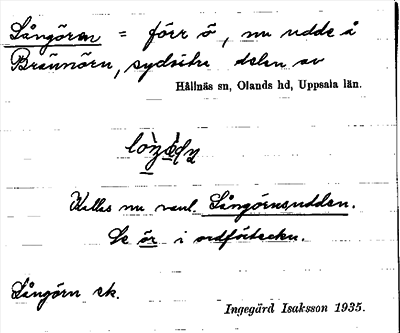 Långören = förr ö, nu udde å
Brännörn, sydöstra delen av
Hållnäs sn, Olands hd, Uppsala län.
Kallas nu vanl. Långörnsudden.
Se ör i ordförteckn.
Långörn ek.
Ingegärd Isaksson 1935.